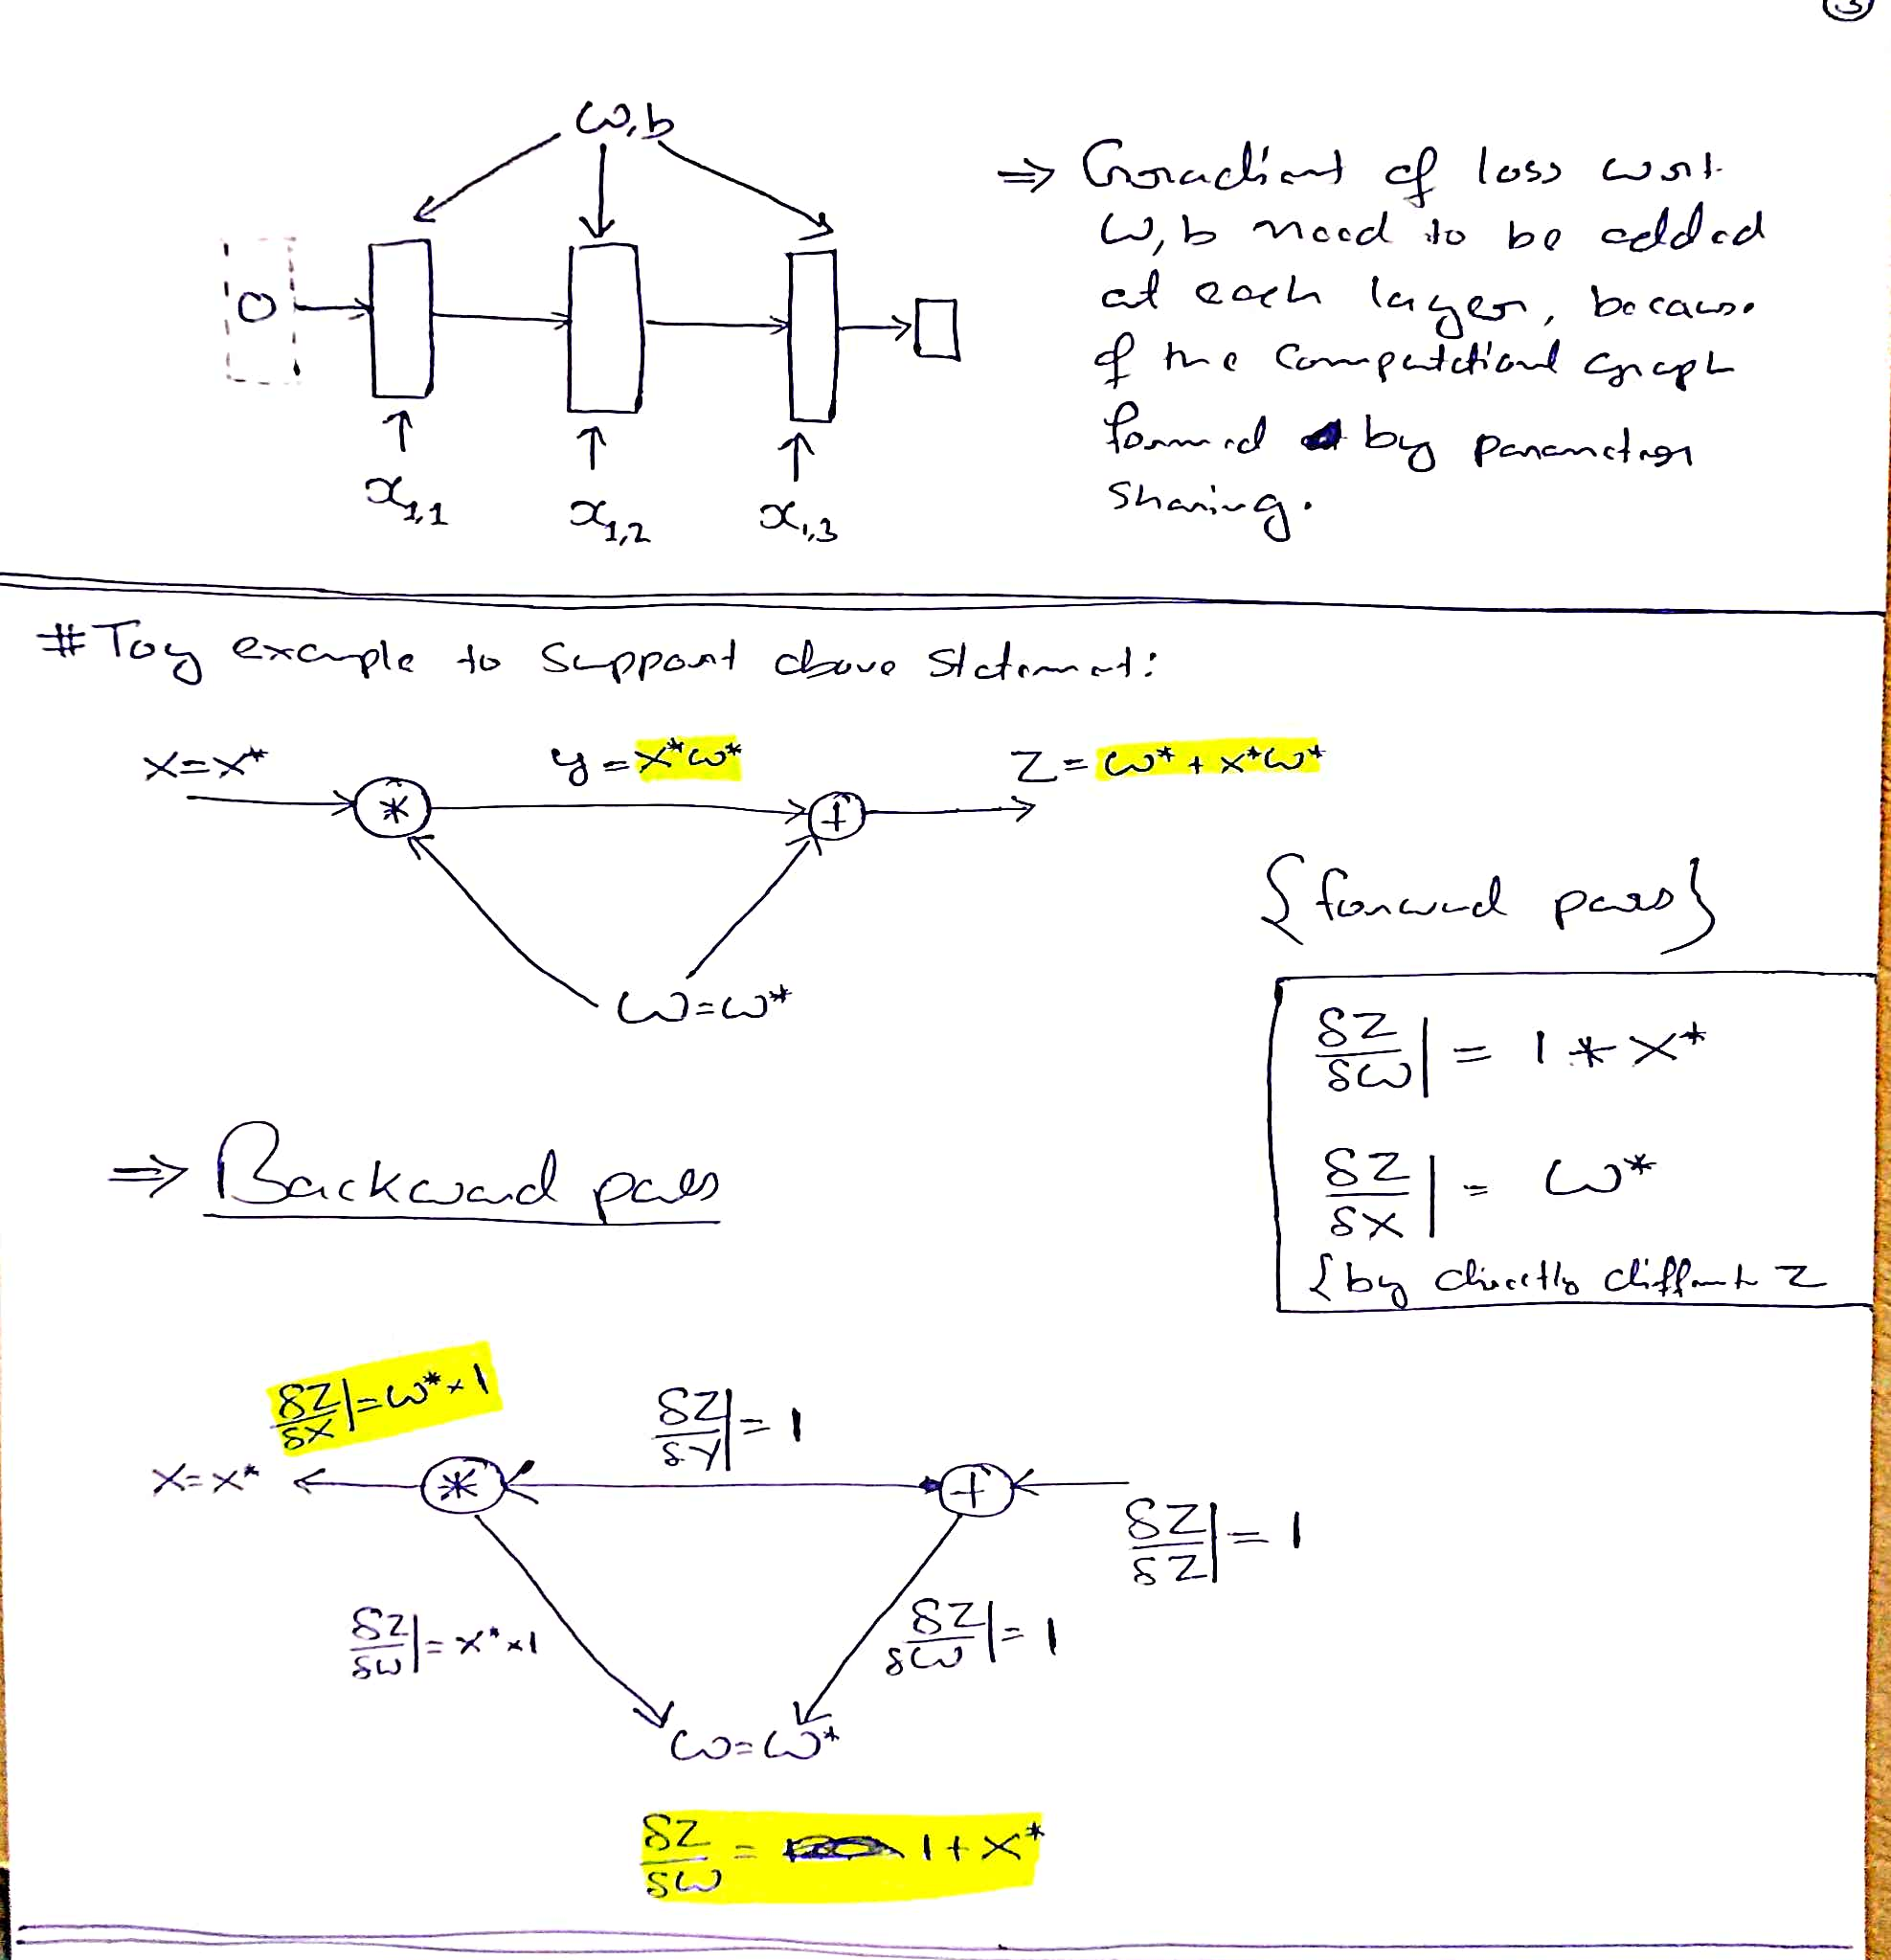 3
ω, b
⇒ Gradient of loss wrt.
ω, b need to be added
at each layer, because
of the computational graph
formed by parameter
sharing.
0
x₁,₁
x₁,₂
x₁,₃
# Toy example to support above statement:
x = x* y = x*ω* z = ω* + x*ω*
* +
ω = ω*
{forward pass}
δz/δω | = 1 * x*
δz/δx | = ω*
{by directly different z
⇒ Backward pass
δz/δx | = ω* × 1
δz/δy | = 1
x = x* * +
δz/δz | = 1
δz/δω | = x* × 1
δz/δω | = 1
ω = ω*
δz/δω = 1 + x*